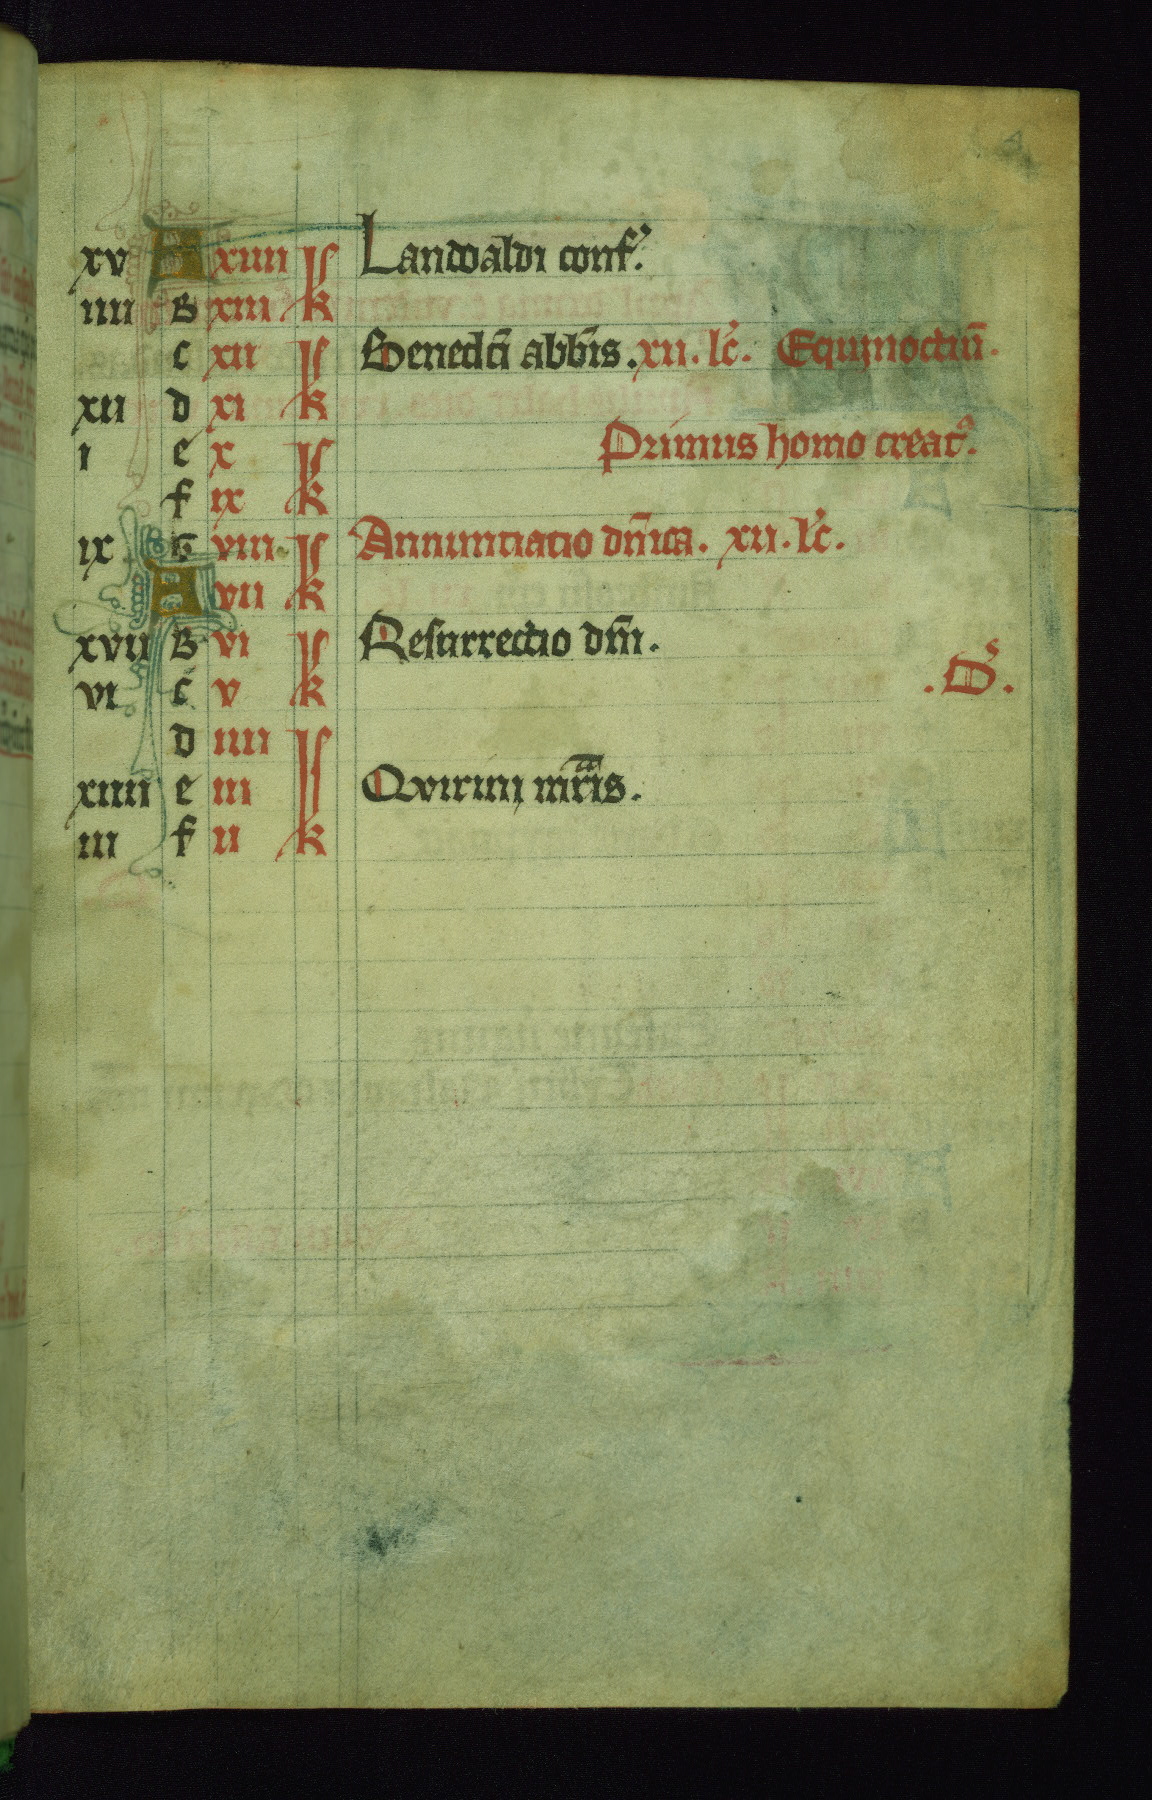 xv A xiiii kl Landoaldi conf᷒.
iiii b xiii k
c xii kl Benedc̄i abb̄is. xii. lc̄. Equinoctiū.
xii d xi k
i e x kl Primus homo creat᷒.
f ix k
ix g viii kl Annuntiatio dn̄ica. xii. lc̄.
A vii k
xvii b vi kl Resurrectio dn̄i.
vi c v k .D᷒.
d iiii kl
xiiii e iii kl Quirini mr̄is.
iii f ii k